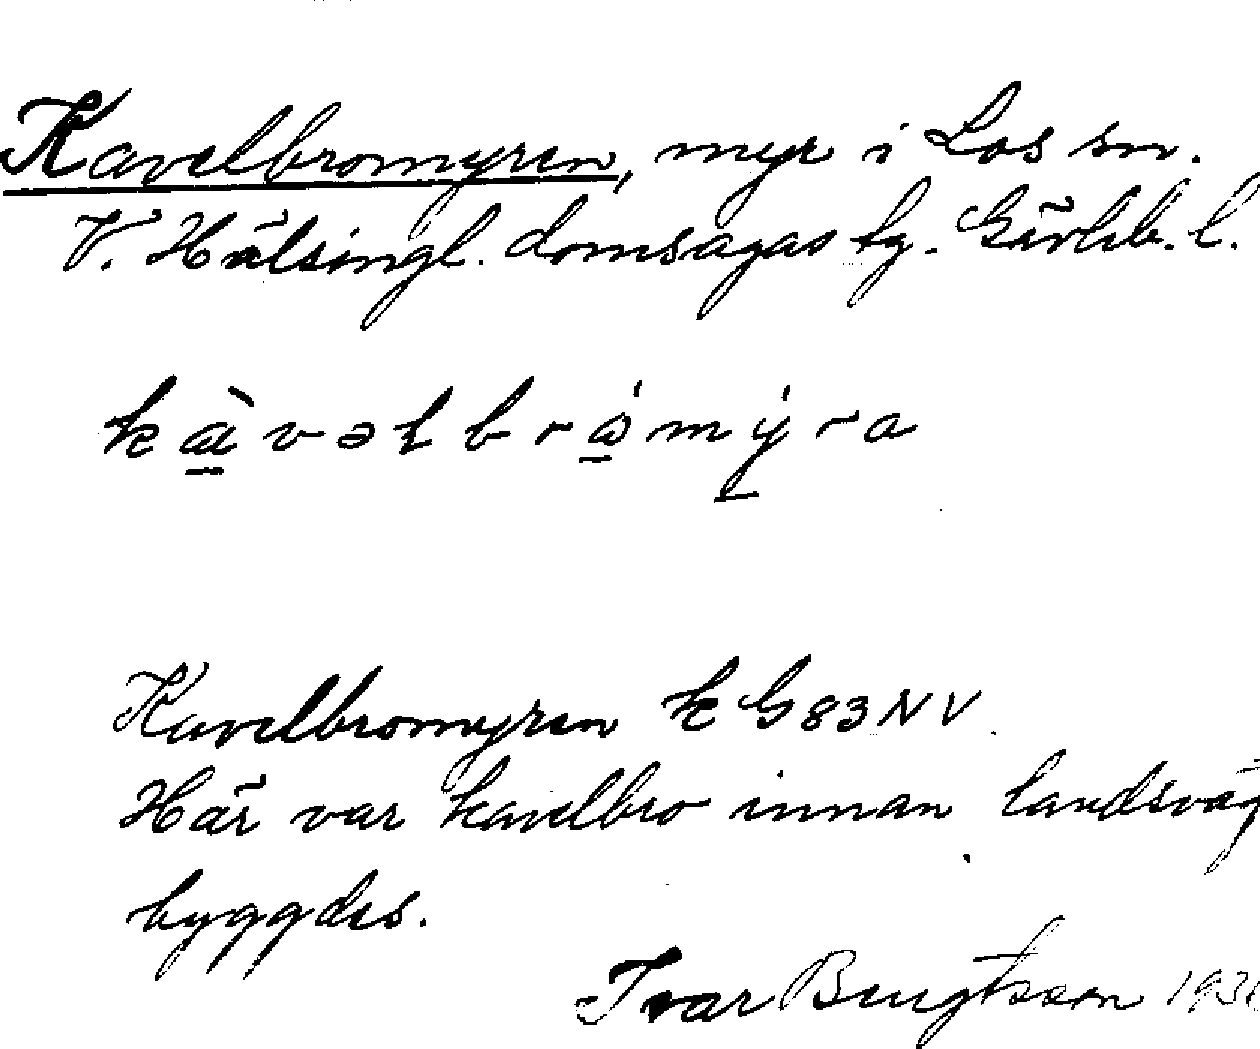 Kavelbromyren, myr i Los sn.
V. Hälsingl. domsagas tg. Gävleb. l.
kàvəlbrómýra
Kavelbromyren k G 83 NV
Här var kavelbro innan landsväg
byggdes.
Ivar Bengtsson